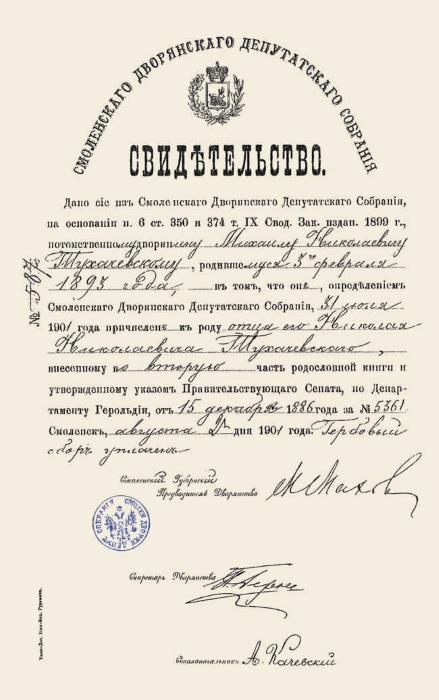 СМОЛЕНСКАГО ДВОРЯНСКАГО ДЕПУТАТСКАГО СОБРАНІЯ
СВИДѢТЕЛЬСТВО.
Дано сіе изъ Смоленскаго Дворянскаго Депутатскаго Собранія,
на основаніи п. 6 ст. 350 и 374 т. IX Свод. Зак. издан. 1899 г.,
потомственному дворянину Михаилу Николаевичу
Тухачевскому, родившемуся 3го февраля
1893 года, въ томъ, что онъ, опредѣленіемъ
Смоленскаго Дворянскаго Депутатскаго Собранія, 31 іюля
1901 года причисленъ къ роду отца его Николая
Николаевича Тухачевскаго,
внесенному во вторую часть родословной книги и
утвержденному указомъ Правительствующаго Сената, по Депар-
таменту Герольдіи, отъ 15 декабря 1886 года за № 5361
Смоленскъ, августа дня 1901 года. Гербовый
сборъ уплаченъ
№ 587
Смоленскій Губернскій
Предводитель Дворянства
СОБРАНІЯ СМОЛЕН ДВОРЯН ДЕПУТ
Секретарь Дворянства
Столоначальникъ А. Качевскій